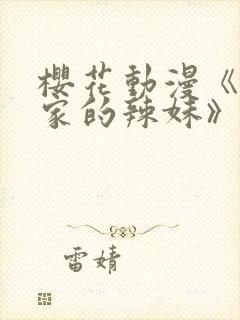 櫻花動漫《
家的辣妹》
雷婧